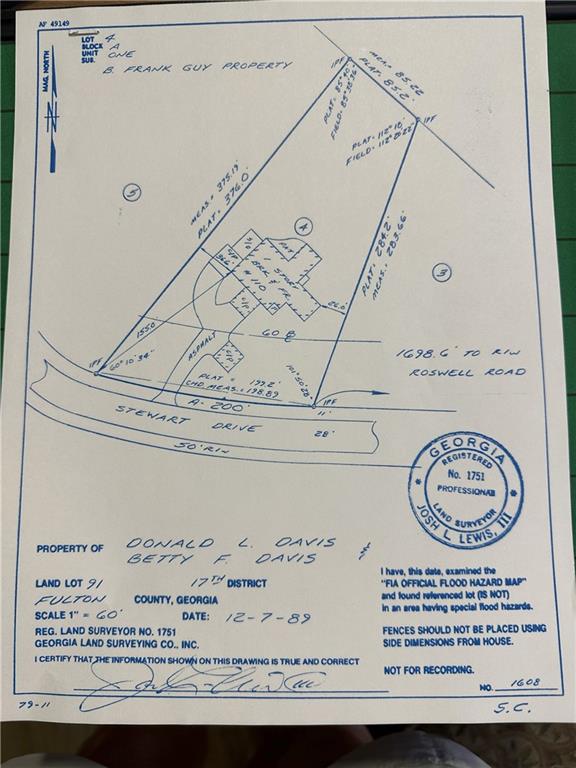 AF 49149
LOT 4
BLOCK A
UNIT ONE
SUB. B. FRANK GUY PROPERTY
MAG. NORTH
IPF
MEAS. = 85.22
PLAT = 85.2'
PLAT = 85°40'
FIELD = 85°38'36"
PLAT = 112°18'
FIELD = 112°20'22"
IPF
MEAS. = 375.19'
PLAT = 376.0'
5
4
3
PLAT = 284.2'
MEAS. = 283.66'
PAT.
1 STORY
BRK. & FR.
# 110
C/P
26.0'
155.0'
60 B
ASPHALT
1698.6' TO R/W
ROSWELL ROAD
IPF
60°10'34"
101°50'28"
PLAT = 199.2'
CHD. MEAS. = 198.89
A = 200'
IPF
11'
STEWART DRIVE
28'
50' R/W
GEORGIA
REGISTERED
No. 1751
PROFESSIONAL
LAND SURVEYOR
JOSH L. LEWIS, III
PROPERTY OF DONALD L. DAVIS
BETTY F. DAVIS
LAND LOT 91 17TH DISTRICT
FULTON COUNTY, GEORGIA
SCALE 1" = 60' DATE: 12-7-89
REG. LAND SURVEYOR NO. 1751
GEORGIA LAND SURVEYING CO., INC.
I CERTIFY THAT THE INFORMATION SHOWN ON THIS DRAWING IS TRUE AND CORRECT
I have, this date, examined the
"FIA OFFICIAL FLOOD HAZARD MAP"
and found referenced lot (IS NOT)
in an area having special flood hazards.
FENCES SHOULD NOT BE PLACED USING
SIDE DIMENSIONS FROM HOUSE.
NOT FOR RECORDING.
NO. 1608
79-11
S.C.